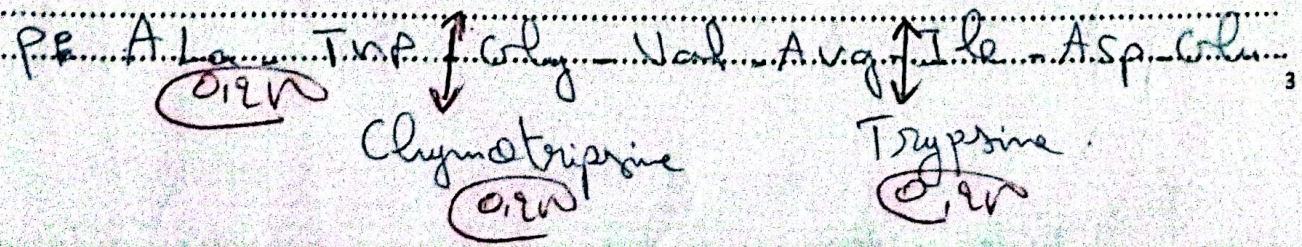 PP Ala - Trp ↕ Gly - Val - Arg ↕ Ile - Asp - Glu
3
0,25 Chymotripsine Trypsine
0,25 0,25